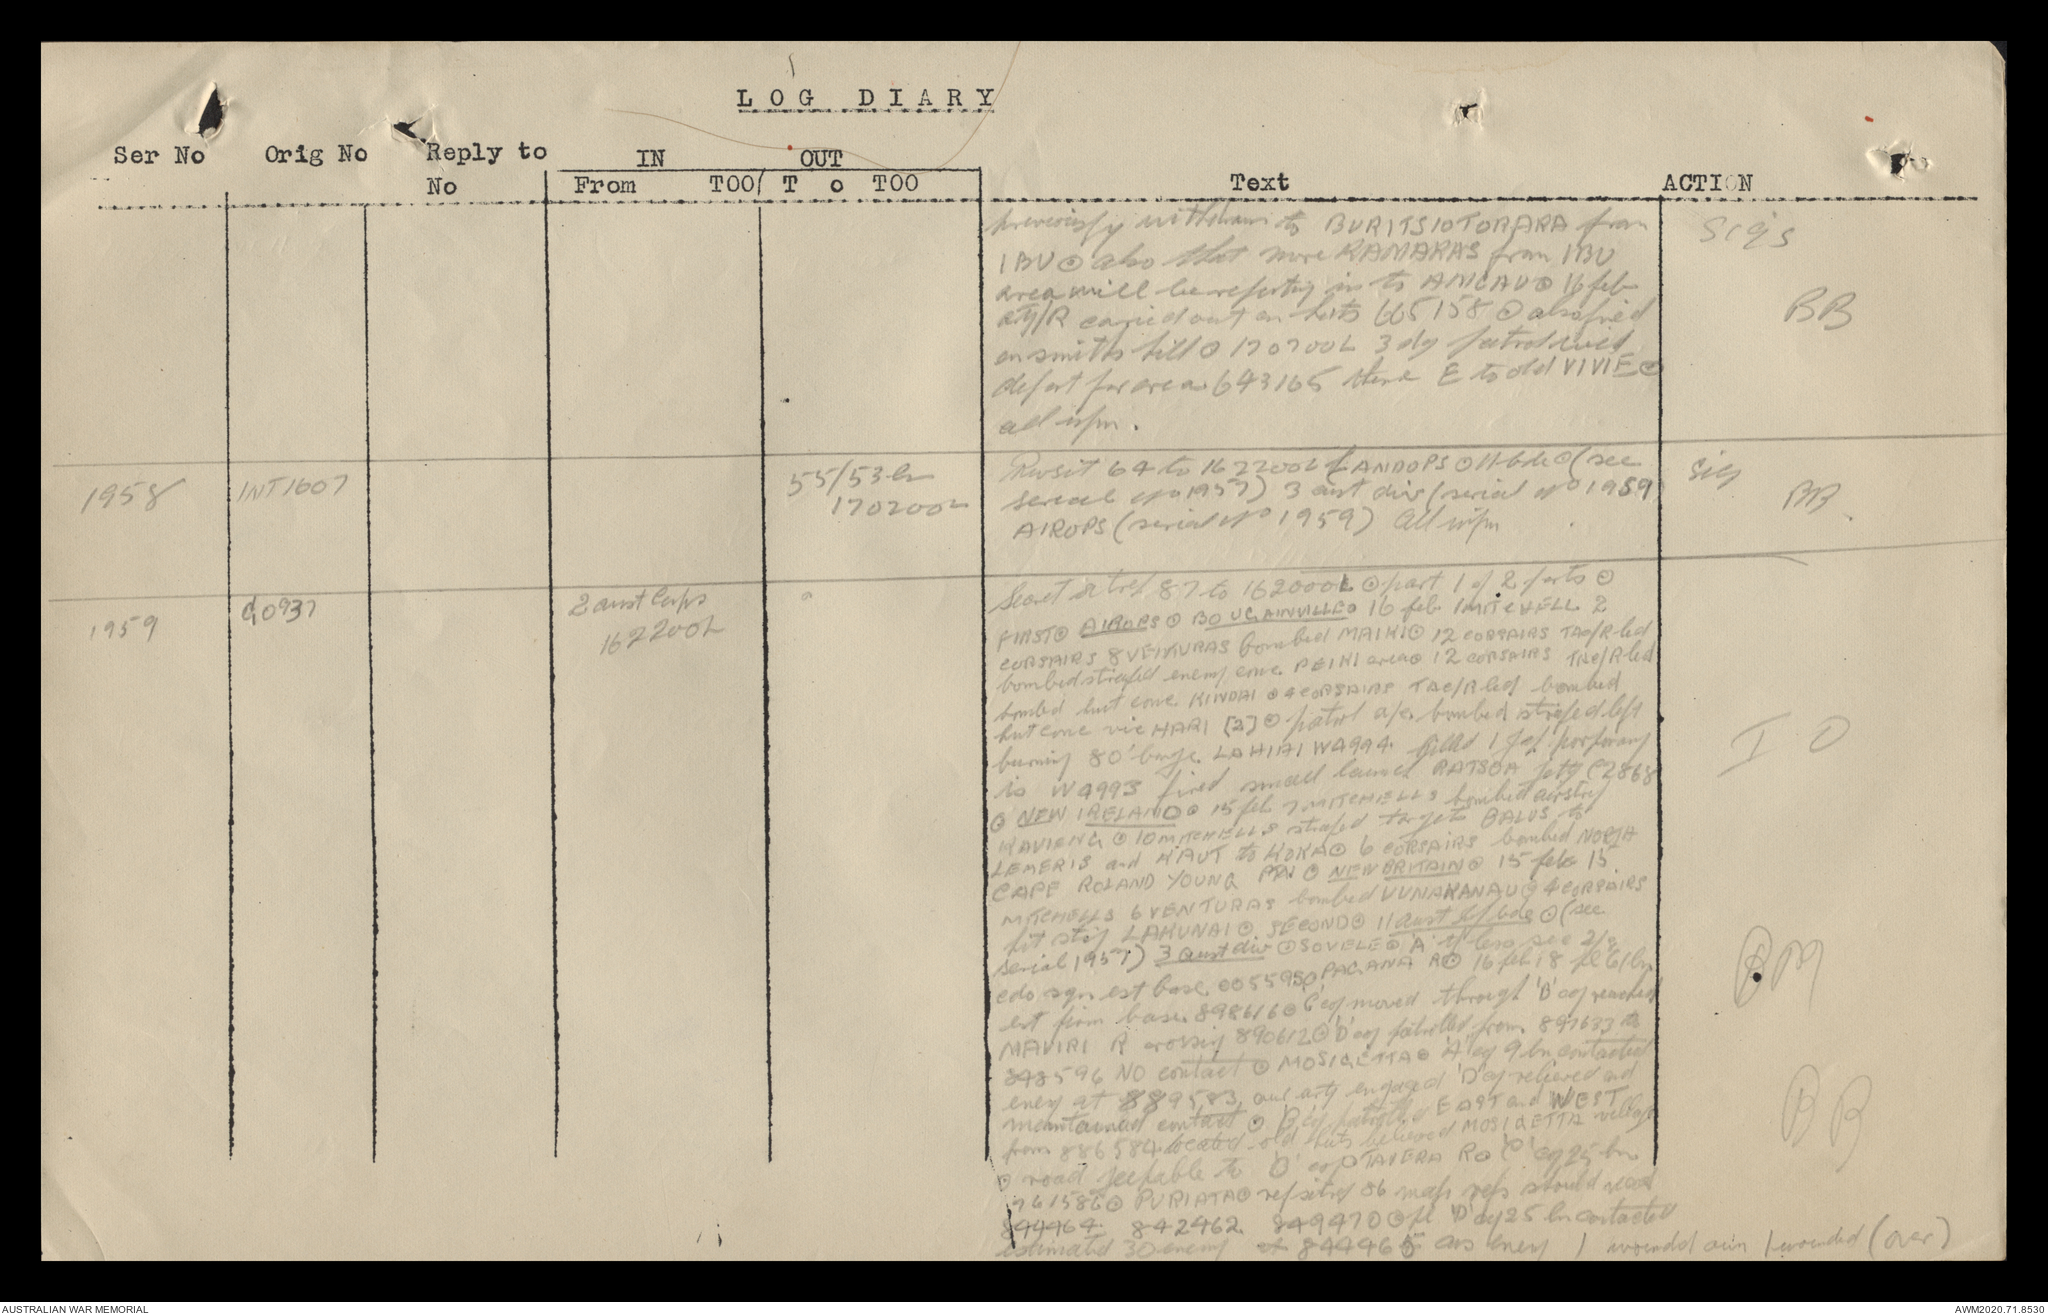 LOG DIARY
Ser No Orig No Reply to No IN OUT
From TOO/ T o TOO Text ACTION
previously withdrawn to BURITSIOTORARA from
IBU ⊙ also that more KAMARAS from IBU
area will be reporting in to AMCAU ⊙ 16 feb
arty/R carried out on huts 665158 ⊙ also fired
on smiths hill ⊙ 170700L 3 dy patrol will
depart for area 643165 thence E to old VIVIE ⊙
all infm.
Sigs
BB
1958 INT1607 55/53 bn
170200L
sit 64 to 162200L LANDOPS ⊙ 11 bde ⊙ (see
serial no 1957) 3 aust div (serial no 1959)
AIROPS (serial no 1959) All infm
Sig
BB
1959 G0937 2 aust Corps
162200L
Secret sitrep 87 to 162000L ⊙ part 1 of 2 parts ⊙
FIRST ⊙ AIROPS ⊙ BOUGAINVILLE ⊙ 16 feb 1 MITCHELL 2
CORSAIRS 8 VENTURAS bombed MAIKI ⊙ 12 CORSAIRS TAC/R led
bombed strafed enemy conc PEIKI area ⊙ 12 CORSAIRS TAC/R led
bombed hut conc KINDAI ⊙ 4 CORSAIRS TAC/R led bombed
hut conc vic HARI [2] ⊙ patrol a/c bombed strafed left
burning 80' barge LAHIAI W4994 killed 1
is W4993 fired small launch RATSUA jetty C2868
⊙ NEW IRELAND ⊙ 15 feb 7 MITCHELLS bombed airstrip
KAVIENG ⊙ 10 MITCHELLS strafed targets BALUS to
LEMERIS and KAUT to KOKA ⊙ 6 CORSAIRS bombed NORTH
CAPE ROLAND YOUNG ⊙ NEW BRITAIN ⊙ 15 feb 15
MITCHELLS 6 VENTURAS bombed VUNAKANAU ⊙ 4 CORSAIRS
hit strip LAKUNAI ⊙ SECOND ⊙ 11 aust inf bde ⊙ (see
serial 1957) 3 aust div ⊙ SOVELE ⊙ 'A' tp less sec 2/8
cdo sqn est base 005595 ⊙ PAGANA R ⊙ 16 feb 18 pl 61 bn
est firm base 898616 ⊙ 'C' coy moved through 'B' coy reached
MAVIRI R crossing 890612 ⊙ 'D' coy patrolled from 897633 to
848596 NO contact ⊙ MOSIGETTA ⊙ 'A' coy 9 bn contacted
enemy at 889583 our arty engaged 'D' coy relieved and
maintained contact ⊙ B coy patrolled EAST and WEST
from 886584 located old huts believed MOSIGETTA village
⊙ road jeepable to 'D' coy ⊙ TAVERA R ⊙ 'C' coy 25 bn
761586 ⊙ PURIATA ⊙ ref sitrep 86 map refs should read
844464 842462 849470 ⊙ pl 'D' coy 25 bn contacted
estimated 30 enemy at 844465 cas enemy 1 wounded own 1 wounded (over)
I O
BM
BB
AUSTRALIAN WAR MEMORIAL AWM2020.71.8530